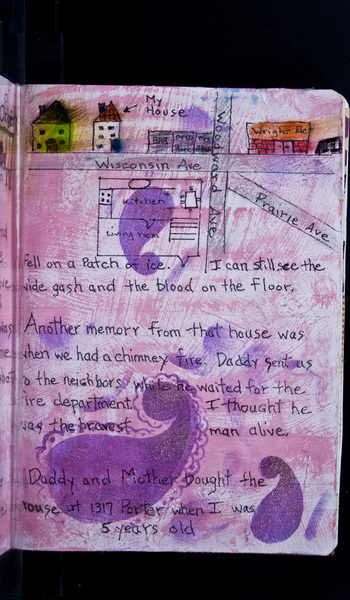 My
House
Woodward Ave
Wright Ele
Wisconsin Ave
Prairie Ave
Kitchen
Living room
fell on a Patch of ice. I can still see the
wide gash and the blood on the floor.
Another memory from that house was
when we had a chimney fire. Daddy sent us
to the neighbors while he waited for the
fire department I thought he
was the bravest man alive.
Daddy and Mother bought the
house at 1317 Porter when I was
5 years old